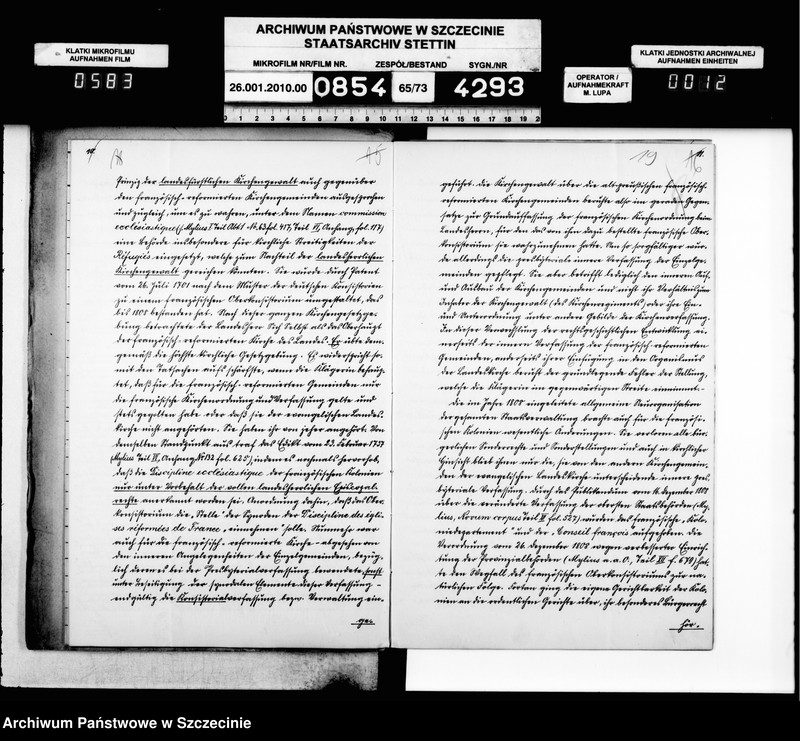 ARCHIWUM PAŃSTWOWE W SZCZECINIE
STAATSARCHIV STETTIN
KLATKI MIKROFILMU
AUFNAHMEN FILM
0583
MIKROFILM NR/FILM NR.
ZESPÓŁ/BESTAND
SYGN./NR
26.001.2010.00
0854
65/73
4293
OPERATOR /
AUFNAHMEKRAFT
M. LUPA
KLATKI JEDNOSTKI ARCHIWALNEJ
AUFNAHMEN EINHEITEN
0012
Prinzip der landesfürstlichen Kirchengewalt auch gegenüber
den französisch-reformierten Kirchengemeinden ausgesprochen
und zugleich, um es zu wahren, unter dem Namen commission
ecclésiastique (s. Mylius Teil Abt. N. 63 fol. 417, Teil VI, Anhang, fol. 117)
eine Behörde insbesondere für kirchliche Streitigkeiten der
Réfugiés eingesetzt, welche zum Nachteil der landesherrlichen
Kirchengewalt gereichen könnten. Sie wurde durch Patent
vom 26. Juli 1701 nach dem Muster der deutschen Konsistorien
zu einem französischen Oberkonsistorium umgestaltet, das
bis 1808 bestanden hat. Nach dieser ganzen Kirchengesetzge-
bung betrachtete der Landesherr Sich Selbst als das Oberhaupt
der französisch-reformierten Kirche des Landes. Er übte dem-
gemäß die höchste kirchliche Gesetzgebung. Es widerspricht so-
mit den Tatsachen aufs schärfste, wenn die Klägerin behaup-
tet, daß für die französisch-reformierten Gemeinden nur
die französische Kirchenordnung und Verfassung gelte und
stets gegolten habe oder daß sie der evangelischen Landes-
kirche nicht angehörten. Sie haben ihr von jeher angehört. Von
demselben Standpunkt aus traf das Edikt vom 23. Februar 1737
(Mylius Teil VI, Anhang N. 132 fol. 625), indem es nochmals hervorhob,
daß die Discipline ecclésiastique der französischen Kolonien
nur unter Vorbehalt der vollen landesherrlichen Episkopal-
rechte anerkannt worden sei, Anordnung dahin, daß das Ober-
konsistorium die Stelle der Synoden der Discipline des égli-
ses réformées de France, einnehmen solle. Nunmehr war
auch für die französisch-reformierte Kirche - abgesehen von
den inneren Angelegenheiten der Einzelgemeinden, bezüg-
lich deren es bei der Presbyterialverfassung bewendete, sonst
unter Beseitigung der synodalen Elemente dieser Verfassung -
endgültig die Konsistorialverfassung bezw. Verwaltung ein-
ge-
19
geführt. Die Kirchengewalt über die alt-preußischen französisch-
reformierten Kirchengemeinden beruhte also im geraden Gegen-
satze zur Grundauffassung der französischen Kirchenordnung beim
Landesherrn, für den das von ihm dazu bestellte französische Ober-
konsistorium sie wahrzunehmen hatte. Um so sorgfältiger wur-
de allerdings die presbyteriale innere Verfassung der Einzelge-
meinden gepflegt. Sie aber betrifft lediglich den inneren Auf-
und Ausbau der Kirchengemeinden und nicht ihr Verhältnis zum
Inhaber der Kirchengewalt (des Kirchenregiments) oder ihre Ein-
und Unterordnung unter andere Gebilde der Kirchenverfassung.
In dieser Verwechslung der rechtsgeschichtlichen Entwicklung ei-
nerseits der inneren Verfassung der französisch-reformierten
Gemeinden, anderseits ihrer Einfügung in den Organismus
der Landeskirche beruht der grundlegende Fehler der Stellung,
welche die Klägerin im gegenwärtigen Streite einnimmt.-
Die im Jahre 1808 eingeleitete allgemeine Neuorganisation
der gesamten Staatsverwaltung brachte auch für die französi-
schen Kolonien wesentliche Änderungen. Sie verloren alle bür-
gerlichen Sonderrechte und Sonderstellungen und auch in kirchlicher
Hinsicht blieb ihnen nur die, sie von den andern Kirchengemein-
den der evangelischen Landeskirche unterscheidende innere pres-
byteriale Verfassung. Durch das Publikandum vom 16. Dezember 1808
über die veränderte Verfassung der obersten Staatsbehörden (My-
lius, Novum corpus Teil fol. 527) wurden das französische "Kolo-
niedepartement" und der "Conseil français" aufgehoben. Die
Verordnung vom 26. Dezember 1808 wegen verbesserter Einrich-
tung der Provinzialbehörden (Mylius a.a.O. Teil f. 679) hat-
te den Wegfall des französischen Oberkonsistoriums zur na-
türlichen Folge. Sodann ging die eigene Gerichtsbarkeit der Kolo-
nien an die ordentlichen Gerichte über, ihr besonderes Bürgerrecht
hör-
Archiwum Państwowe w Szczecinie